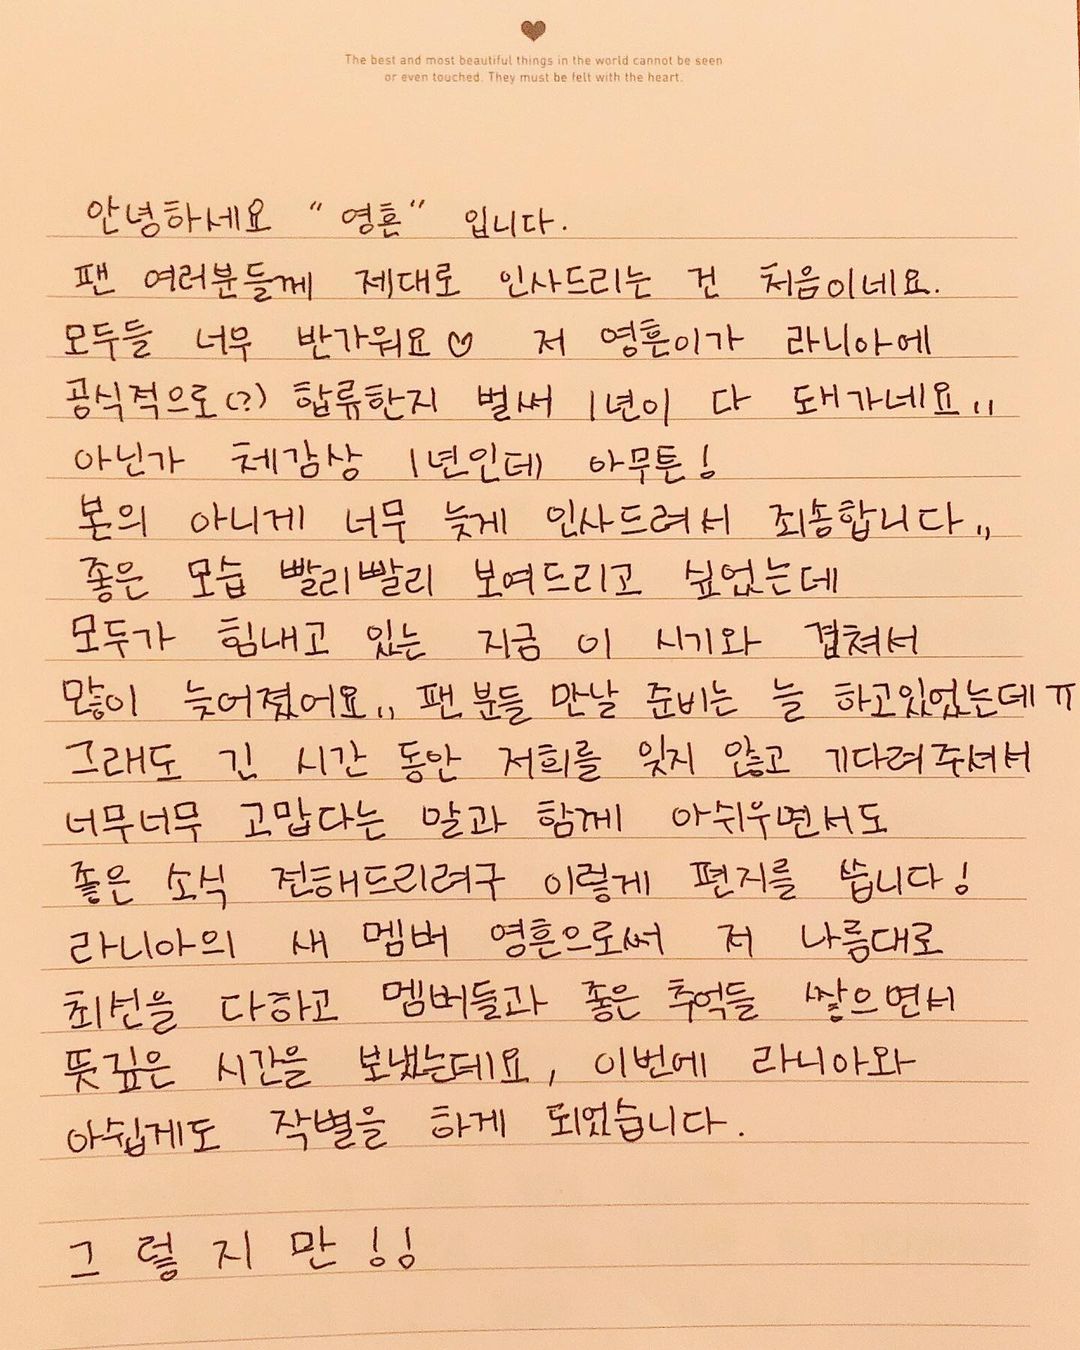 The best and most beautiful things in the world cannot be seen
or even touched. They must be felt with the heart.
안녕하세요 “영흔” 입니다.
팬 여러분들께 제대로 인사드리는 건 처음이네요.
모두들 너무 반가워요♡ 저 영흔이가 라니아에
공식적으로(?) 합류한지 벌써 1년이 다 돼가네요,,
아닌가 체감상 1년인데 아무튼!
본의 아니게 너무 늦게 인사드려서 죄송합니다,,
좋은 모습 빨리빨리 보여드리고 싶었는데
모두가 힘내고 있는 지금 이 시기와 겹쳐서
많이 늦어졌어요,, 팬분들 만날 준비는 늘 하고있었는데ㅠ
그래도 긴 시간 동안 저희를 잊지 않고 기다려주셔서
너무너무 고맙다는 말과 함께 아쉬우면서도
좋은 소식 전해드리려구 이렇게 편지를 씁니다!
라니아의 새 멤버 영흔으로써 저 나름대로
최선을 다하고 멤버들과 좋은 추억들 쌓으면서
뜻깊은 시간을 보냈는데요, 이번에 라니아와
아쉽게도 작별을 하게 되었습니다.
그렇지만!!